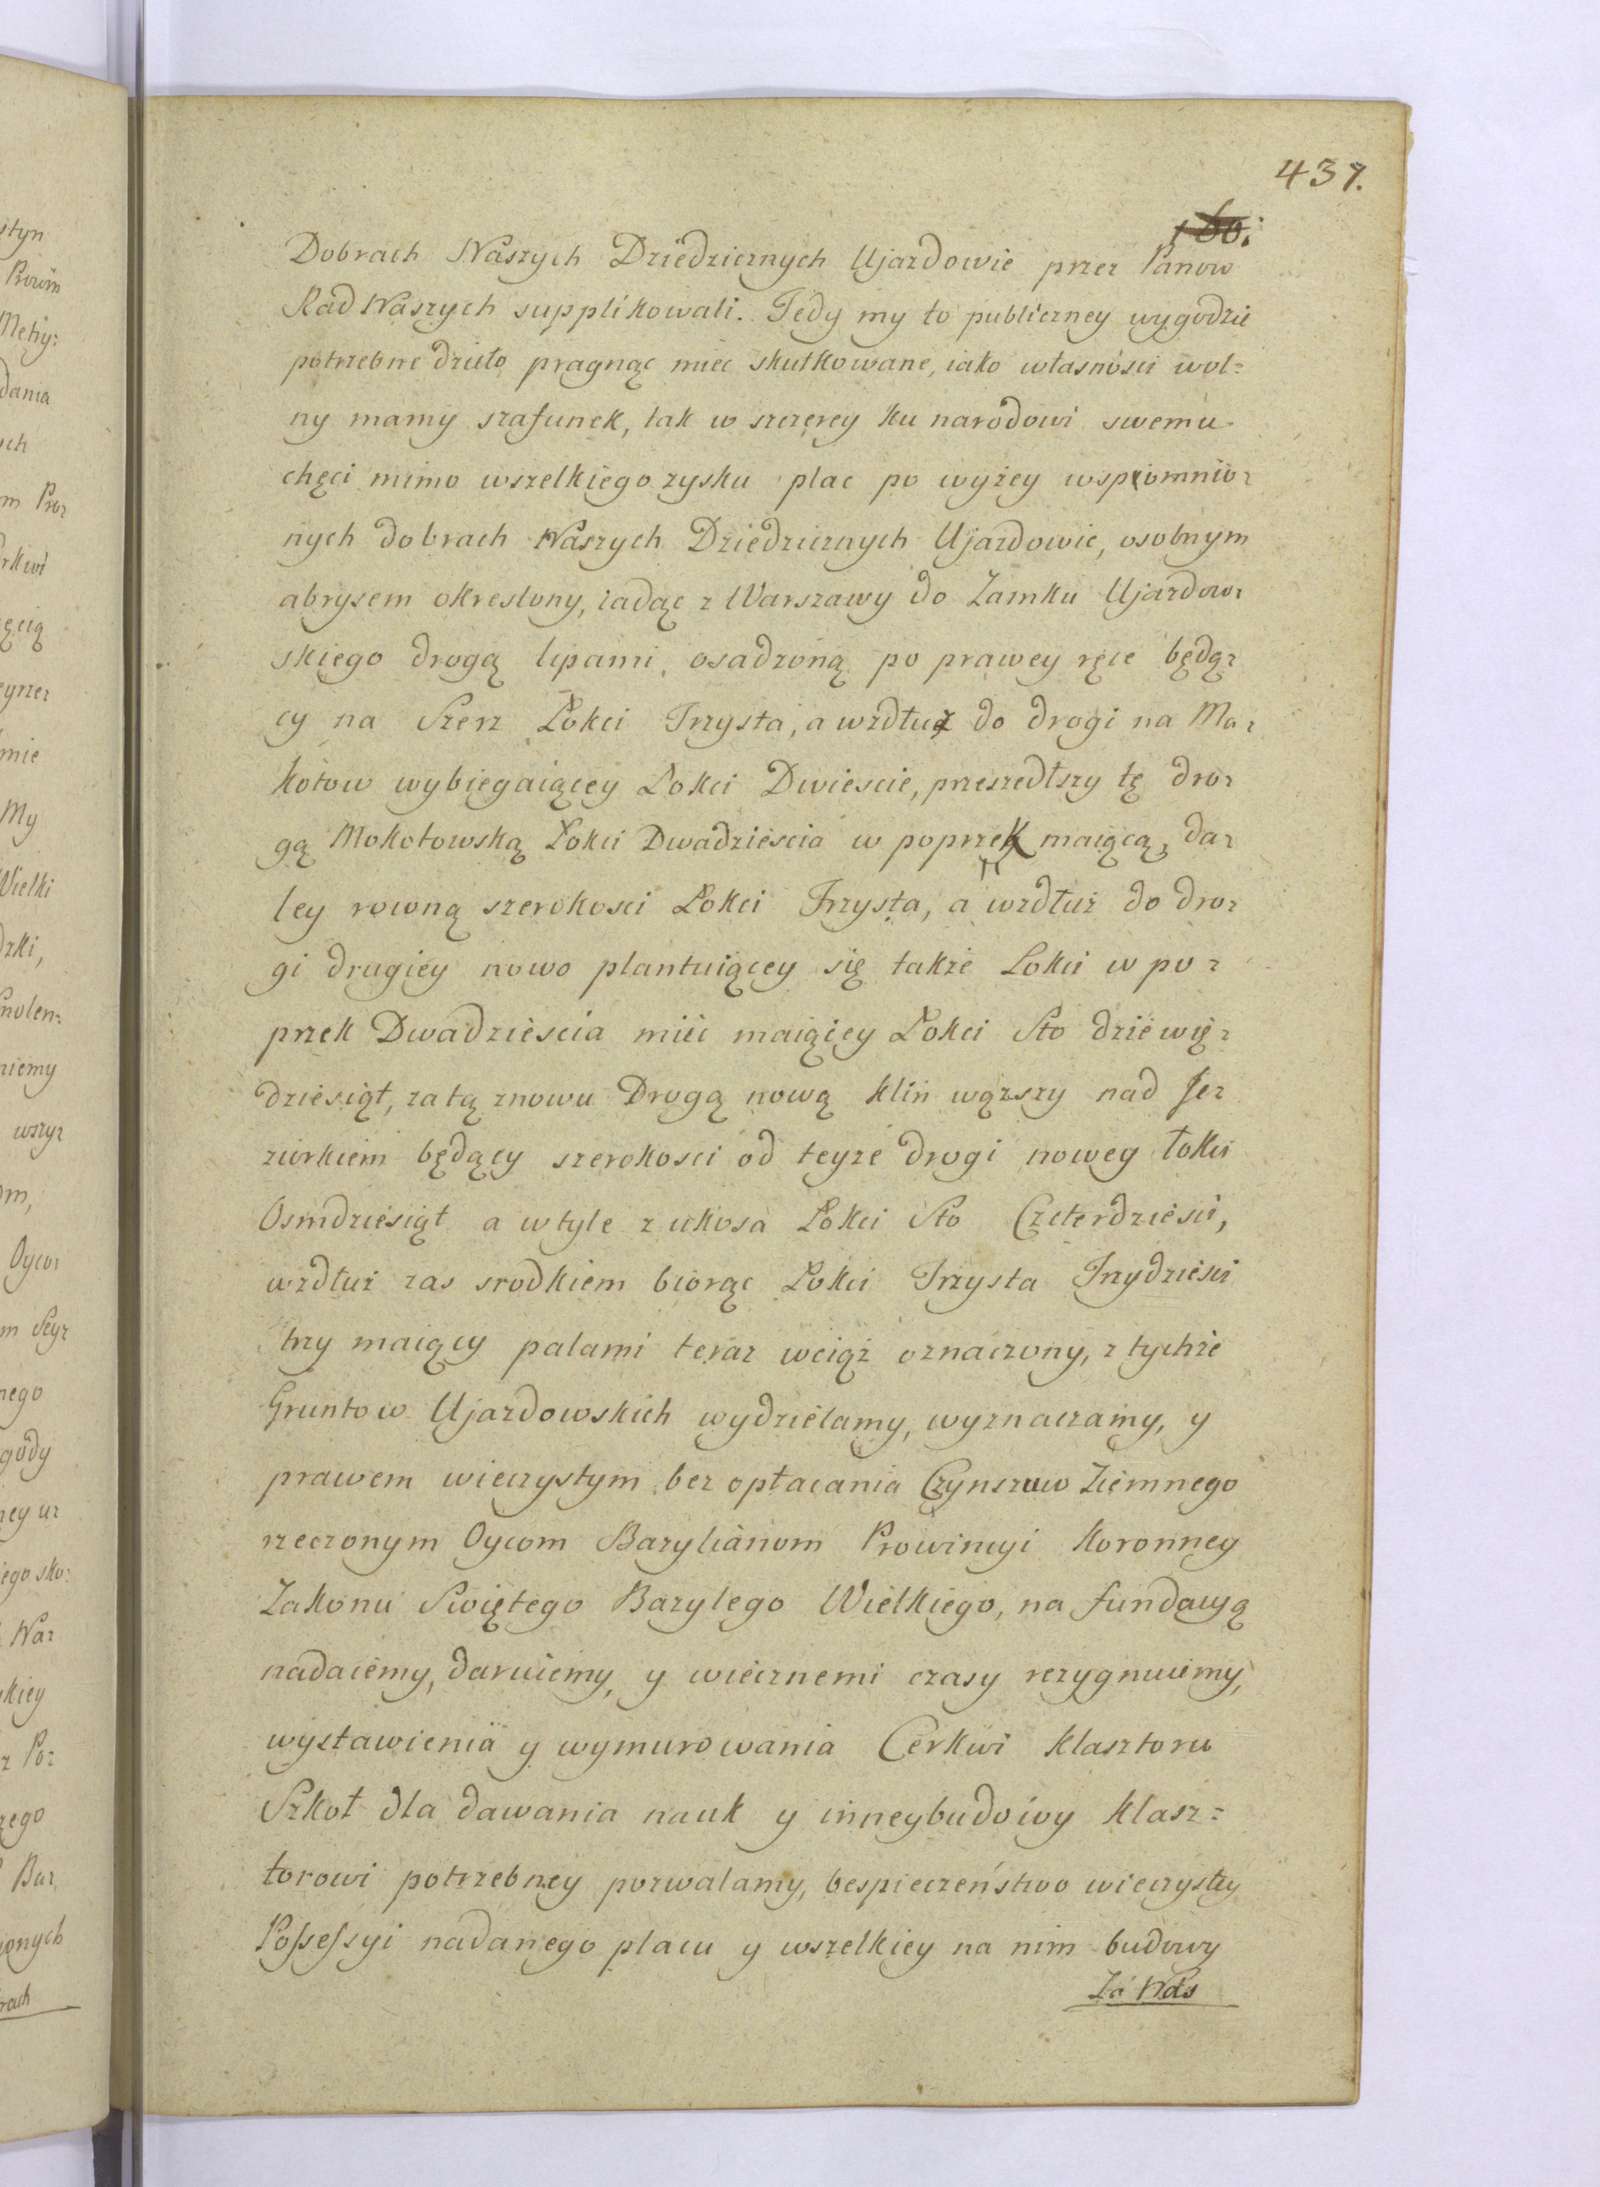 437.
Dobrach Naszych Dziedzicznych Ujazdowie przez Panow
Rad Naszych supplikowali. Tedy my to publiczney wygodzie
potrzebne dzieło pragnąc miec skutkowane, iako własności wol=
ny mamy szafunek, tak w szczerey ku narodowi swemu
chęci mimo wszelkiego zysku plac po wyżey wspomnio=
nych dobrach Naszych Dziedzicznych Ujazdowie, osobnym
abrysem okreslony, iadąc z Warszawy do Zamku Ujazdow=
skiego drogą lipami osadzoną po prawey ręce będą=
cy na Szerz Łokci Trzysta, a wzdłuż do drogi na Mo=
kotow wybiegaiącey Łokci Dwiescie, przeszedłszy tę dro=
gą Mokotowską Łokci Dwadziescia w poprzek maiącą, da=
ley rowną szerokosci Łokci Trzysta, a wzdłuż do dro=
gi drugiey nowo plantuiącey się także Łokci w po=
przek Dwadziescia mieć maiącey Łokci Sto dziewię=
dziesiąt, za tą znowu Drogą nową klin wązszy nad Je=
ziorkiem będący szerokosci od teyże drogi nowey łokci
Osmdziesiąt a w tyle z ukosa Łokci Sto Czterdzieści,
wzdłuż zas srodkiem biorąc Łokci Trzysta Trzydziesci
trzy maiący palami teraz wciąż oznaczony, z tychże
Gruntow Ujazdowskich wydzielamy, wyznaczamy, y
prawem wieczystym bez opłacania Czynszow Ziemnego
rzeczonym Oycom Bazylianom Prowincyi Koronney
Zakonu Swiętego Bazylego Wielkiego, na fundacyą
nadaiemy, daruiemy, y wiecznemi czasy rezygnuiemy,
wystawienia y wymurowania Cerkwi klasztoru
Szkoł dla dawania nauk y inney budowy klasz=
torowi potrzebney pozwalamy, bespieczeństwo wieczystey
Possessyi nadanego placu y wszelkiey na nim budowy
Za Nas